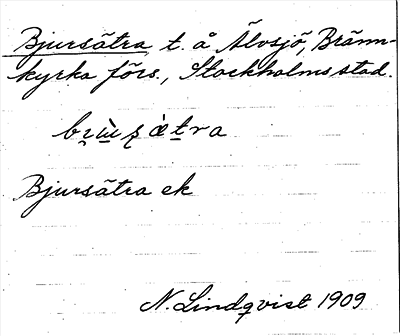 Bjursätra t. å Älvsjö, Bränn-
kyrka förs., Stockholms stad.
Bjursätra ek
N. Lindqvist 1909